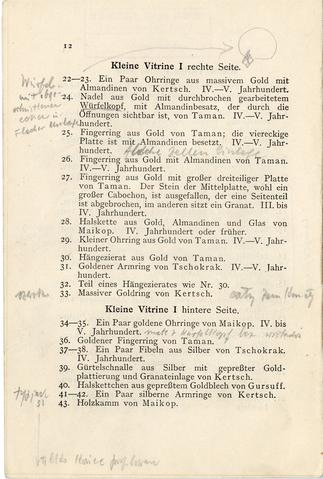 12
Kleine Vitrine I rechte Seite.
22—23. Ein Paar Ohrringe aus massivem Gold mit
Almandinen von Kertsch. IV.—V. Jahrhundert.
24. Nadel aus Gold mit durchbrochen gearbeitetem
Würfelkopf, mit Almandinbesatz, der durch die
Öffnungen sichtbar ist, von Taman. IV.—V. Jahr-
hundert.
25. Fingerring aus Gold von Taman; die viereckige
Platte ist mit Almandinen besetzt. IV.—V. Jahr-
hundert.
26. Fingerring aus Gold mit Almandinen von Taman.
IV.—V. Jahrhundert.
27. Fingerring aus Gold mit großer dreiteiliger Platte
von Taman. Der Stein der Mittelplatte, wohl ein
großer Cabochon, ist ausgefallen, der eine Seitenteil
ist abgebrochen, im anderen sitzt ein Granat. III. bis
IV. Jahrhundert.
28. Halskette aus Gold, Almandinen und Glas von
Maikop. IV. Jahrhundert oder früher.
29. Kleiner Ohrring aus Gold von Taman. IV.—V. Jahr-
hundert.
30. Hängezierat aus Gold von Taman.
31. Goldener Armring von Tschokrak. IV.—V. Jahr-
hundert.
32. Teil eines Hängezierates wie Nr. 30.
33. Massiver Goldring von Kertsch.
Kleine Vitrine I hintere Seite.
34—35. Ein Paar goldene Ohrringe von Maikop. IV. bis
V. Jahrhundert.
36. Goldener Fingerring von Taman.
37—38. Ein Paar Fibeln aus Silber von Tschokrak.
IV. Jahrhundert.
39. Gürtelschnalle aus Silber mit gepreßter Gold-
plattierung und Granateinlage von Kertsch.
40. Halskettchen aus gepreßtem Goldblech von Gursuff.
41—42. Ein Paar silberne Armringe von Kertsch.
43. Holzkamm von Maikop.